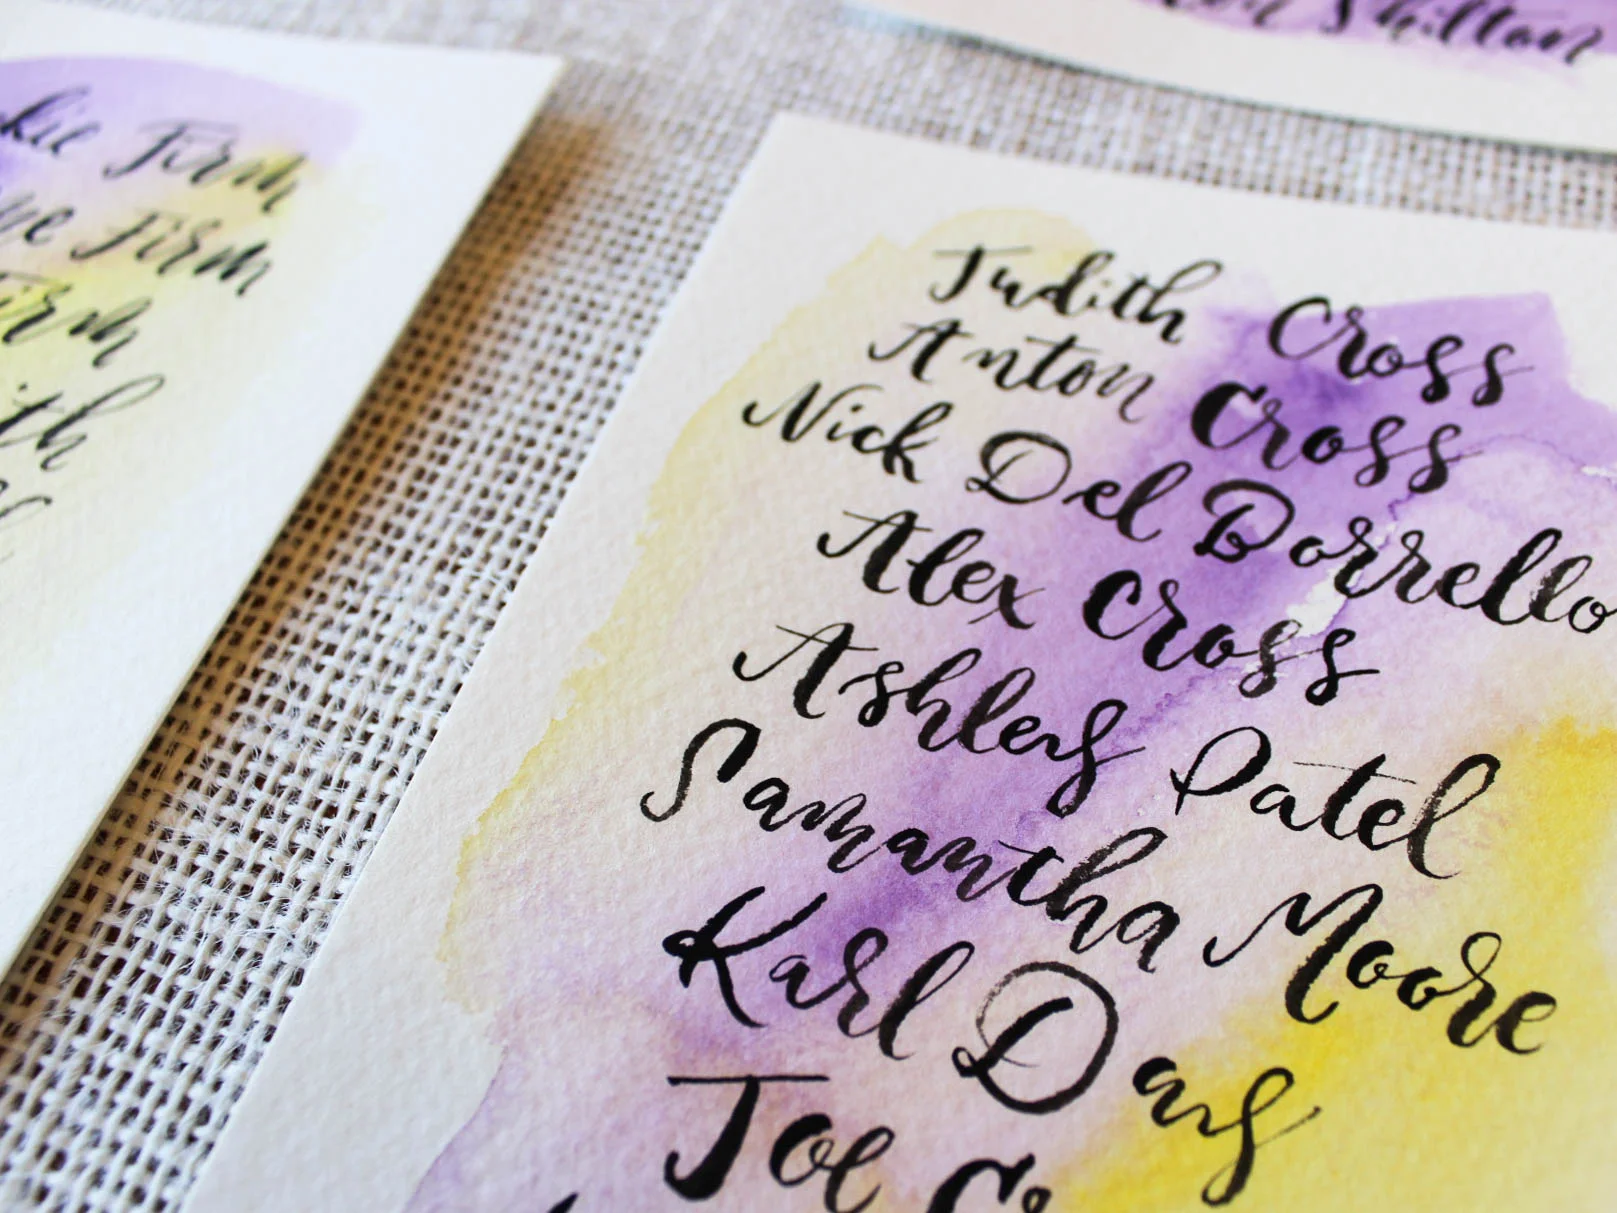 Shilton
Firm
Firm
Judith Cross
Anton Cross
Nick Del Borrello
Alex Cross
Ashley Patel
Samantha Moore
Karl Day
Joe